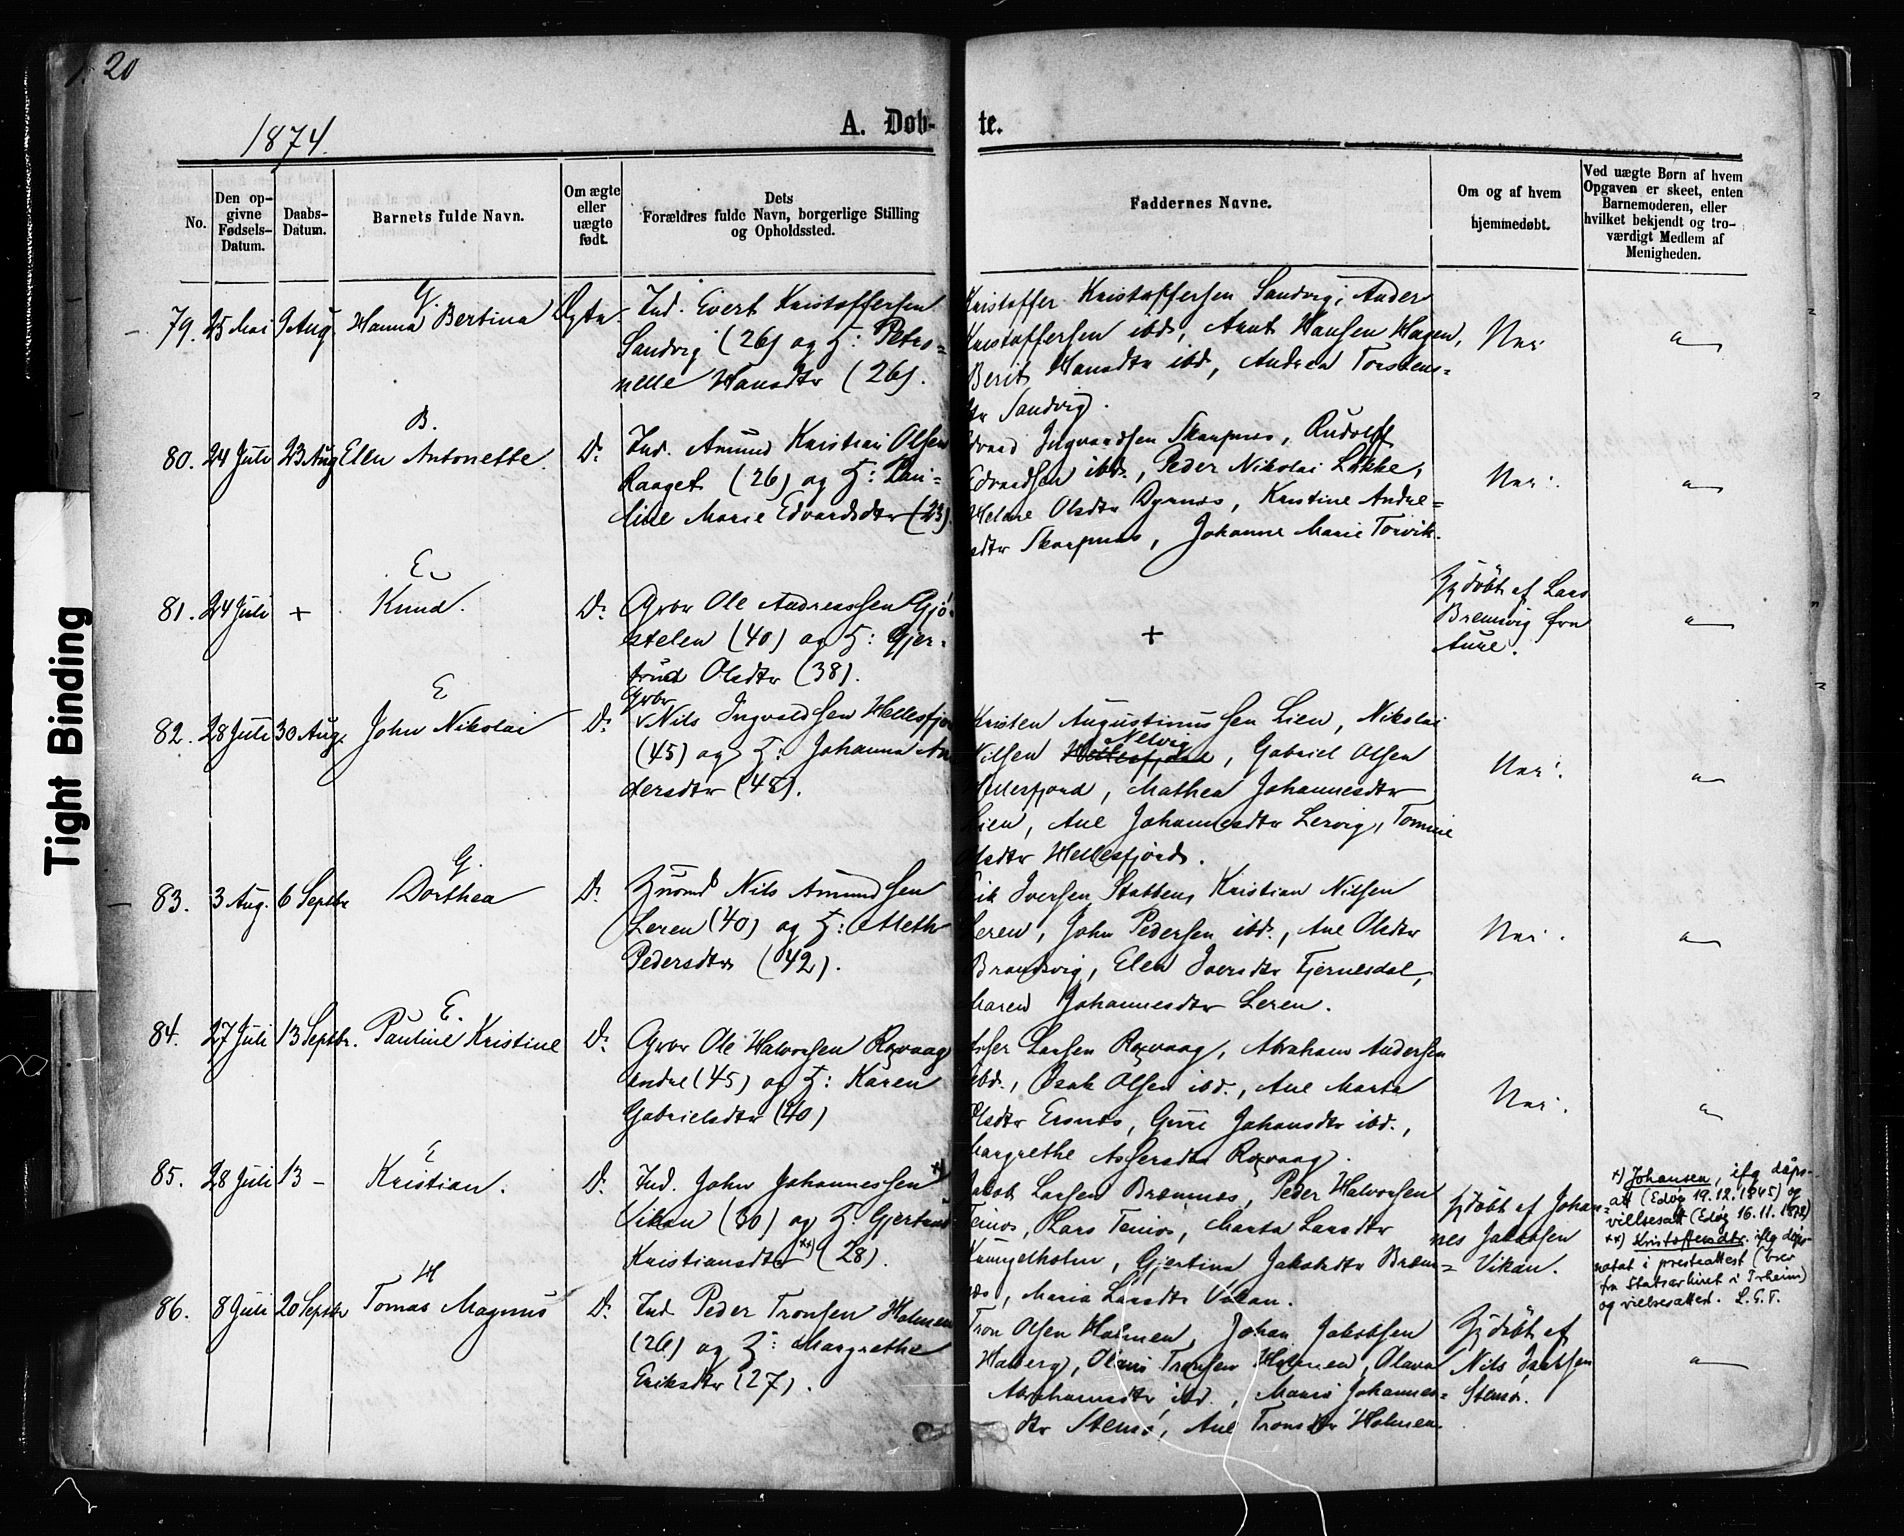 20
1874.
A. Døb- te.
No.
Den op-
givne
Fødsels-
Datum.
Daabs-
Datum.
Barnets fulde Navn.
Om ægte
eller
uægte
født.
Dets
Forældres fulde Navn, borgerlige Stilling
og Opholdssted.
Faddernes Navne.
Om og af hvem
hjemmedøbt.
Ved uægte Børn af hvem
Opgaven er skeet, enten
Barnemoderen, eller
hvilket bekjendt og tro-
værdigt Medlem af
Menigheden.
G.
79. 25 Mai 9 Aug. Hanna Bertina
Ind. Evert Kristoffersen
Sandvig (26) og H: Petro-
nelle Hansdtr (26).
Kristoffer Kristoffersen Sandvig, Ander
Kristoffersen ibd, Arnt Hansen Hagen,
Berit Hansdtr ibd, Andrea Torstens-
dtr Sandvig.
Nei
B.
80. 24 Juli 23 Aug Ellen Antonette. Do
Ind. Amund Kristian Olsen
(26) og H: Pau-
line Marie Edvardsdtr (23).
Edvard Ingvardsen Skarpnes, Rudolf
Edvardsen ibd., Peder Nikolai Løkke,
Helene Olsdtr Dyrnes, Kristine Andre-
dtr Skarpnes, Johanne Marie Torvik.
Nei.
E
81. 24 Juli + Knud. Do
Grbr Ole Andreassen Gjø-
stelen (40) og H: Gjer-
trud Olsdtr (38).
+
Hjdøbt af Lars
Bremsvig fra
Aure.
E
82. 28 Juli 30 Aug. John Nikolai Do
Grbr
Nils Ingvaldsen Hellesfjor
(45) og H: Johanna An
dersdtr (45).
Kristen Augustinussen Lien, Nikolai
Nelvig
Nilsen Hellesfjord, Gabriel Olsen
Hellesfjord, Mathea Johannesdtr
Lien, Ane Johannesdtr Lervig, Tomine
Olsdtr Hellesfjord.
Nei.
G.
83. 3 Aug. 6 Septbr Dorthea Do
Husmd Nils Amundsen
Leren (40) og H: Mette
Pedersdtr (42).
Erik Iversen Stabben, Kristian Nilsen
Leren, John Pedersen ibd., Ane Olsdtr
Brandsvig, Elen Iversdtr Tjernesdal,
Maren Johannesdtr Leren.
Nei.
E.
84. 27 Juli 13 Septbr. Pauline Kristine Do
Grbr Ole Halvorsen Roxvaag
indre (45) og H: Karen
Gabrielsdtr (40)
Asser Larsen Roxvaag, Abraham Andersen
ibd., Isak Olsen ibd., Ane Marta
Olsdtr Ersnes, Guri Johansdtr ibd.,
Margrethe Assersdtr Roxvaag.
Nei.
E
85. 28 Juli 13 – Kristian. Do
Ind. John Johannessen x)
Vikan (30) og H: Gjertrud
Kristiansdtr xx) (28).
Jakob Larsen Bremnes, Peder Halvorsen
Teinos, Lars Teinos, Marta Larsdtr
Kungelholm, Gjertina Jakobsdtr Brem-
nes, Maria Larsdtr Vikan.
Hjdøbt af Johan-
nes Jakobsen
Vikan.
x) Johansen, iflg dåps-
att (Edøy 19.12.1845) og
villsesatt (Edøy 16.11.1872)
xx) Kristoffersdtr. iflg dåps-
notat i presteattest (brev
fra Statsarkivet i Trheim)
og vielsesattest. L.G.T.
H
86. 8 Juli 20 Septbr Tomas Magnus Do
Ind Peder Tronsen Holmen
(26) og H: Margrethe
Eriksdtr (27).
Tron Olsen Holmen, Johan Jakobsen
Haaberg, Olaus Tronsen Holmen, Olava
Abrahamsdtr ibd., Maria Johannes-
dtr Stensø, Ane Tronsdtr Holmen.
Hjdøbt af
Nils Isaksen
Stensø.
Tight Binding